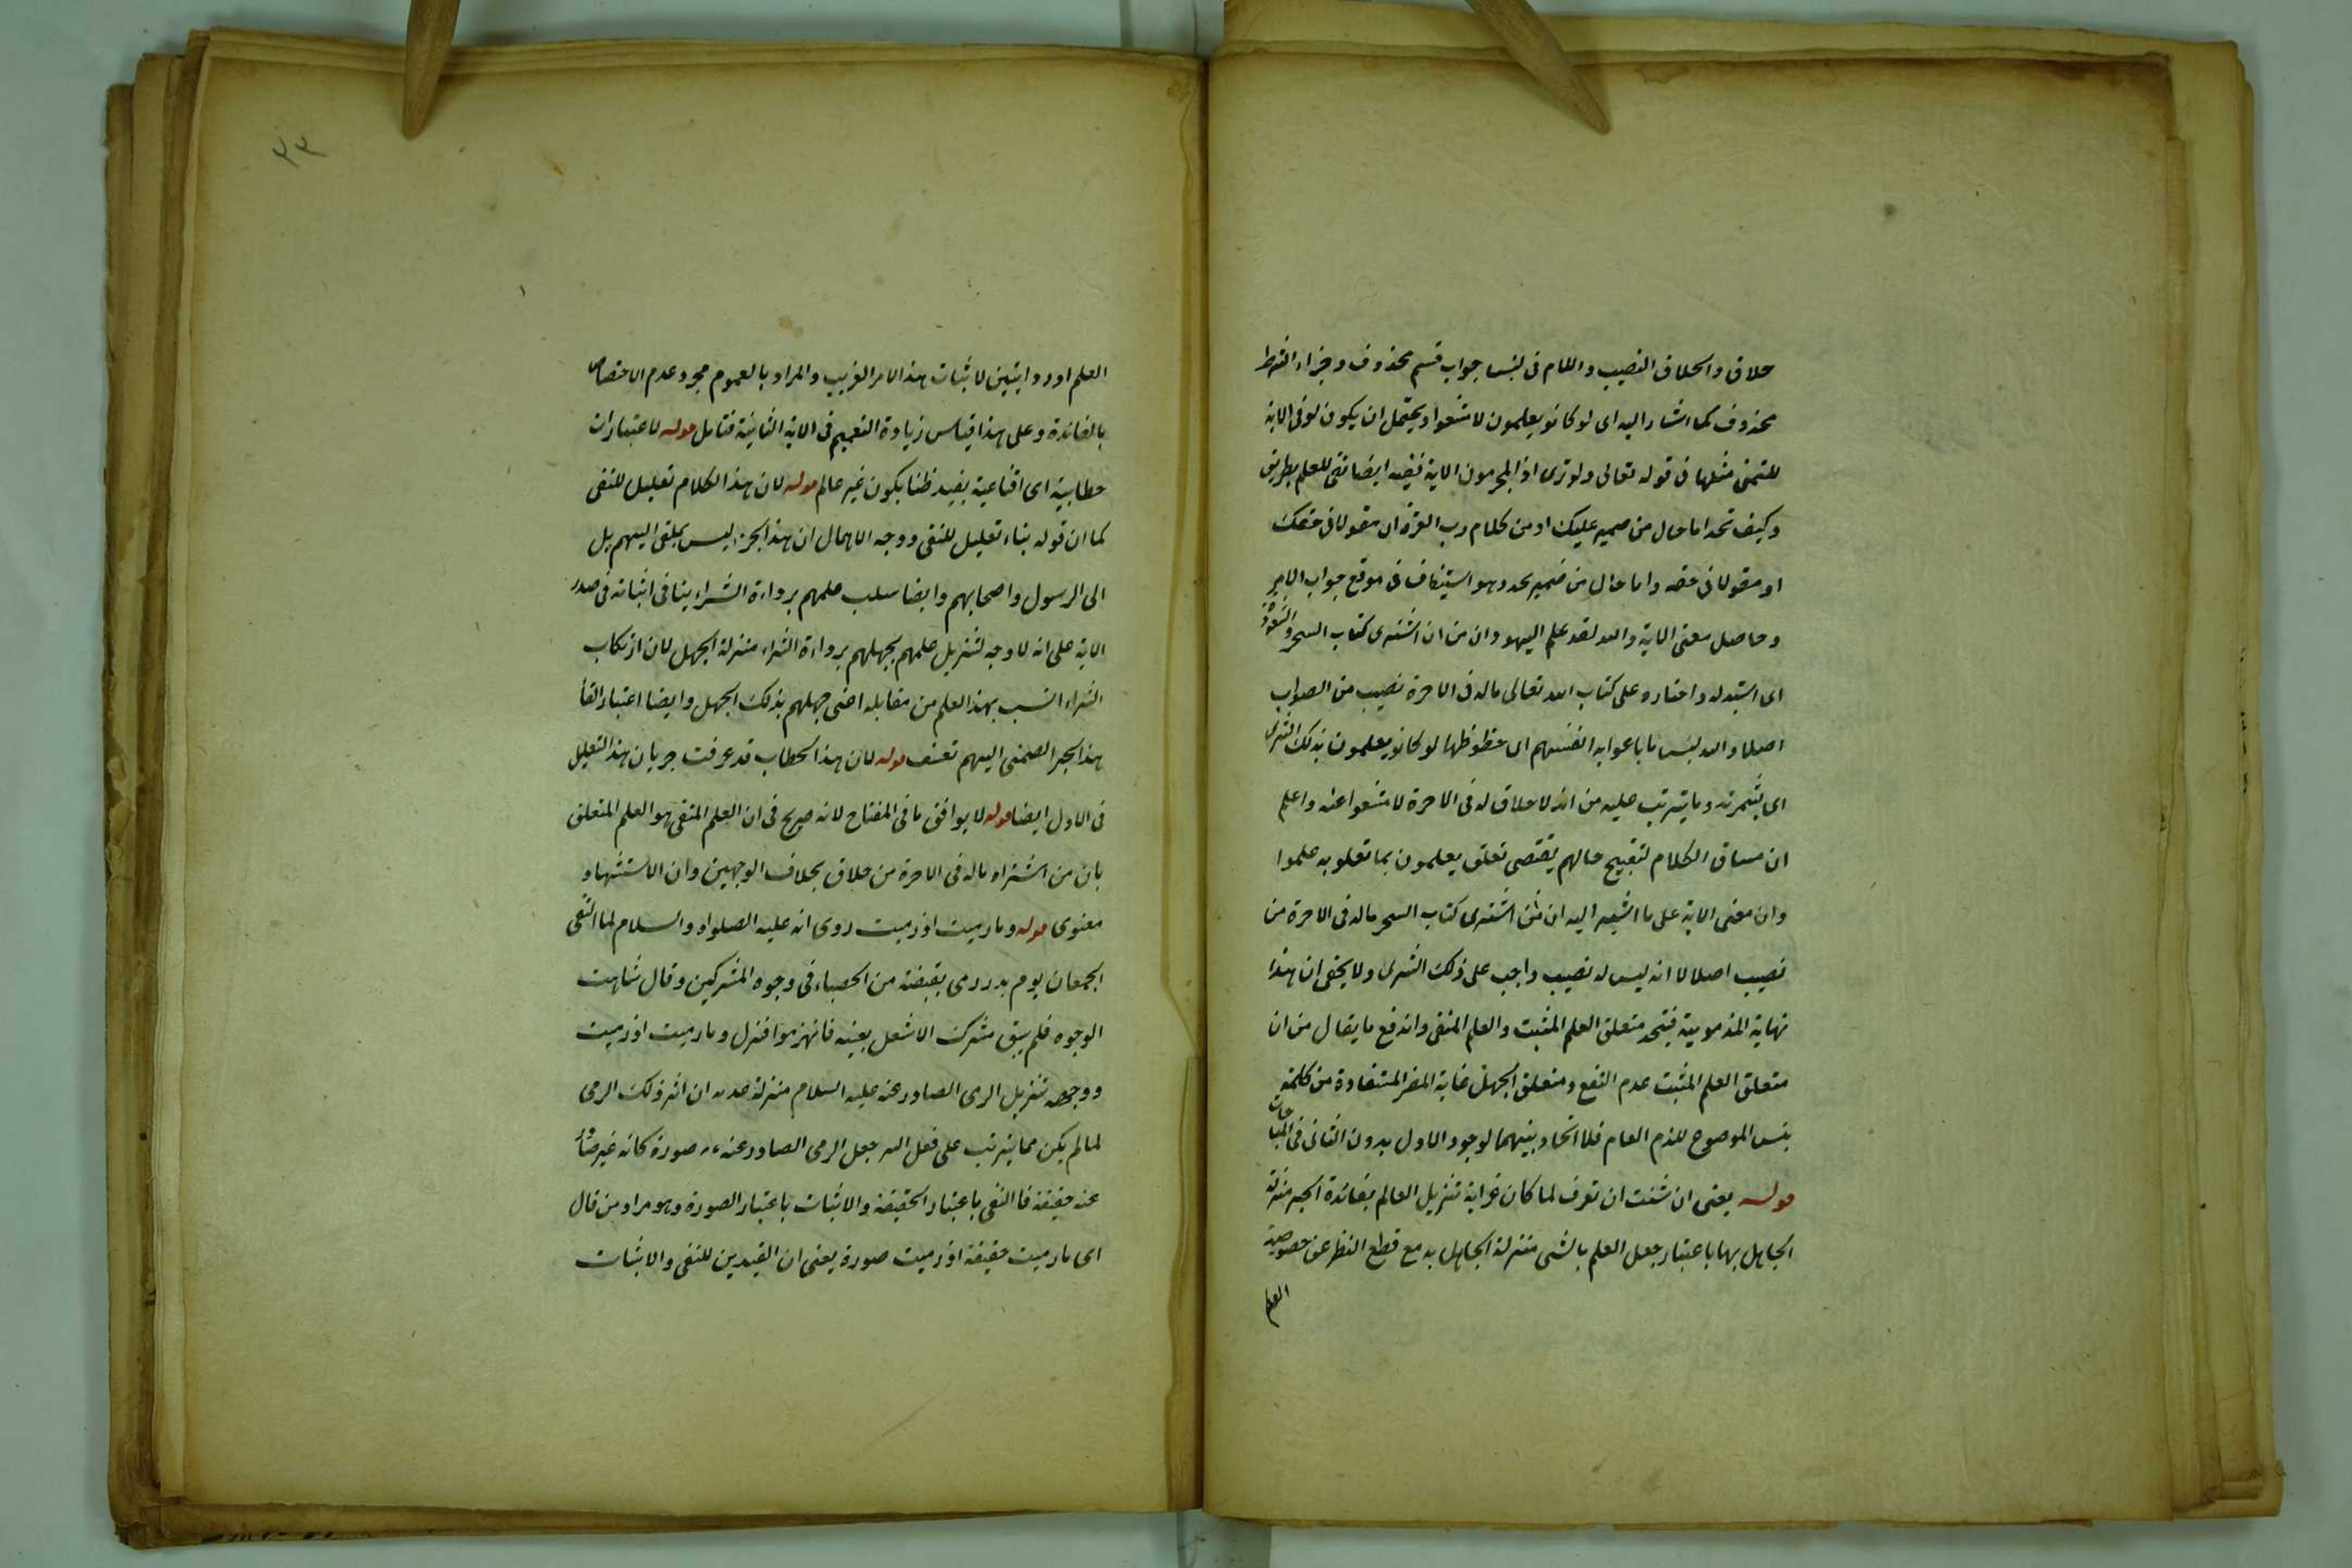 خلاق والخلاق النصيب واللام فى لبئس جواب قسم محذوف وجزاء الشرط
محذوف كما اشار اليه اى لو كانو يعلمون لامتنعوا ويحتمل ان يكون لو فى الاية
للتمنى مثلها فى قوله تعالى ولو ترى اذ المجرمون الاية ففيه ايضا نفى للعلم بطريق
وكيف تحد اما حال من ضمير عليك او من كلام رب العزة اى مقولا فى حقك
او مقولا فى حقه واما حال من ضمير يحد وهو استيناف فى موقع جواب الامر
وحاصل معنى الاية والله لقد علم اليهود ان من ان اشترى كتاب السحر والشعوذة
اى استبدله واختاره على كتاب الله تعالى ماله فى الاخرة نصيب من الصواب
اصلا والله لبئس ما باعوا به انفسهم اى حظوظها لو كانو يعلمون بذلك الشرى
اى بثمرته وما يترتب عليه من انه لا خلاق له فى الاخرة لامتنعوا عنه واعلم
ان مساق الكلام لتقبيح حالهم يقتضى تعلق يعلمون بما تعلق به علموا
وان معنى الاية على ما اشير اليه ان من اشترى كتاب السحر ماله فى الاخرة من
نصيب اصلا لا انه ليس له نصيب واجب على ذلك الشرى ولا يخفى ان هذا
نهاية المذمومية فيتحد متعلق العلم المثبت والعلم المنفى واندفع ما يقال من ان
متعلق العلم المثبت عدم النفع ومتعلق الجهل غاية المضر المستفادة من كلمة
بئس الموضوع للذم العام فلا اتحاد بينهما لوجود الاول بدون الثانى فى المباحات
قوله يعنى ان شئت ان تعرف لما كان غرابة تنزيل العالم بفائدة الخبر منزلة
الجاهل بها باعتبار جعل العلم بالشى منزلة الجاهل به مع قطع النظر عن خصوصية
العلم
٣٣
العلم اورد ايتين لاثبات هذا الامر الغريب والمراد بالعموم مجرد عدم الاختصاص
بالفائدة وعلى هذا قياس زيادة التعميم فى الاية الثانية فتامل قوله لاعتبارات
خطابية اى اقناعية يفيد ظنا بكون غير عالم قوله لان هذا الكلام تعليل للنفى
كما ان قوله بناء تعليل للنفى ووجه الاهمال ان هذا الخبر ليس بملقى اليهم بل
الى الرسول واصحابهم وايضا سلب علمهم برداءة الشراء ينافى اثباته فى صدر
الاية على انه لا وجه لتنزيل علمهم بجهلهم برداءة الشراء منزلة الجهل لان ارتكاب
الشراء انسب بهذا العلم من مقابله اعنى جهلهم بذلك الجهل وايضا اعتبار القا
هذا الخبر الضمنى اليهم تعسف قوله لان هذا الخطاب قد عرفت جريان هذا التعليل
فى الاول ايضا قوله لا يوافق ما فى المفتاح لانه صريح فى ان العلم المنفى هو العلم المتعلق
بان من اشتراه ماله فى الاخرة من خلاق بخلاف الوجهين وان الاستشهاد
معنوى قوله وما رميت اذ رميت روى انه عليه الصلواة والسلام لما التقى
الجمعان يوم بدر رمى بقبضة من الحصباء فى وجوه المشركين وقال شاهت
الوجوه فلم يبق مشرك الا شغل بعينه فانهزموا فنزل وما رميت اذ رميت
ووجهه تنزيل الرمى الصادر عنه عليه السلام منزلة عدمه ان اثر ذلك الرمى
لما لم يكن مما يترتب على فعل البشر جعل الرمى الصادر عنه ءم صورة كانه غير صادر
عنه حقيقة فالنفى باعتبار الحقيقة والاثبات باعتبار الصورة وهو مراد من قال
اى ما رميت حقيقة اذ رميت صورة يعنى ان القيدين للنفى والاثبات